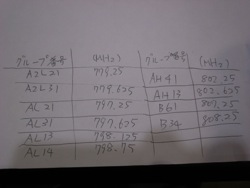 グループ番号 (MHz) グループ番号 (MHz)
A2L21 779.25 AH41 802.25
A2L31 779.625 AH13 802.625
AL21 797.25 B61 807.25
AL31 797.625 B34 808.25
AL13 798.125
AL14 798.75